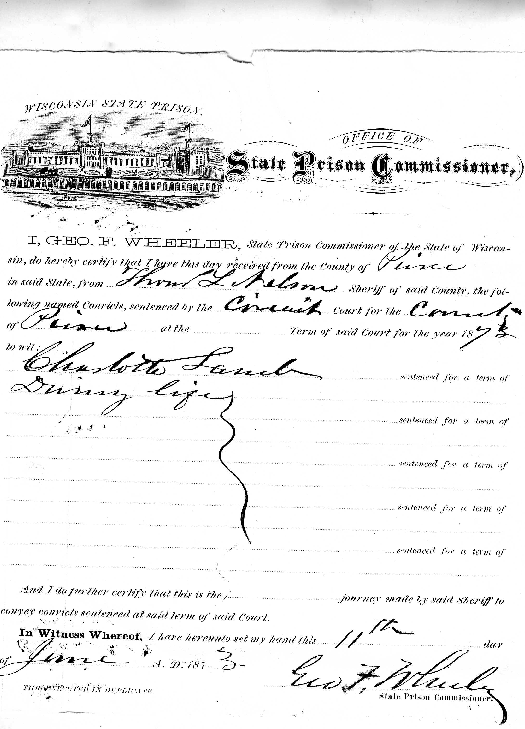 WISCONSIN STATE PRISON.
OFFICE OF
State Prison Commissioner,
I, GEO. F. WHEELER, State Prison Commissioner of the State of Wiscon-
sin, do hereby certify that I have this day received from the County of Pierce
in said State, from Nelson Sheriff of said County, the fol-
lowing named Convicts, sentenced by the Circuit Court for the County
of Pierce at the Term of said Court for the year 187
to wit:
Charlotte Lamb sentenced for a term of
During life
sentenced for a term of
sentenced for a term of
sentenced for a term of
sentenced for a term of
And I do further certify that this is the journey made by said Sheriff to
convey convicts sentenced at said term of said Court.
In Witness Whereof, I have hereunto set my hand this 11th day
of June A. D. 187
Geo F. Wheeler
State Prison Commissioner.